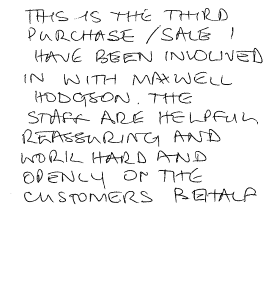 THIS IS THE THIRD
PURCHASE / SALE I
HAVE BEEN INVOLVED
IN WITH MAXWELL
HODGSON. THE
STAFF ARE HELPFUL
REASSURING AND
WORK HARD AND
OPENLY ON THE
CUSTOMERS BEHALF